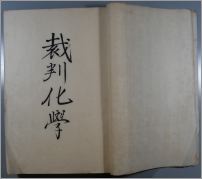 裁判化學